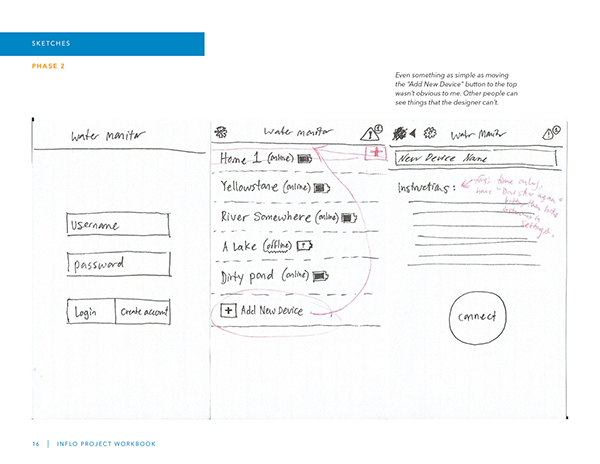 SKETCHES
PHASE 2
Even something as simple as moving
the “Add New Device” button to the top
wasn’t obvious to me. Other people can
see things that the designer can’t.
Water Monitor
Username
Password
Login
Create account
Water Monitor
Home 1 (online)
Yellowstone (online)
River Somewhere (online)
A Lake (offline)
Dirty pond (online)
+ Add New Device
+
Water Monitor
New Device Name
Instructions:
first time only,
have "Don't show again"
settings.
Connect
16 | INFLO PROJECT WORKBOOK